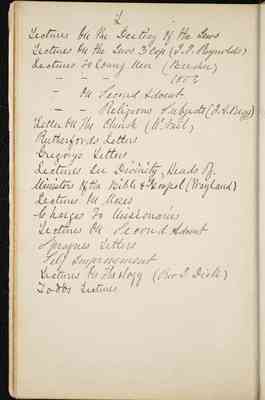 L
Lectures On the Destiny of the Jews
Lectures On the Jews 3 Cop (J. J. Reynolds)
Lectures To Young Men (Beecher)
" " " 1852
" On Second Advent
" " Religious Subjects
Letter On The Church
Rutherfords Letters
Gregory's Letters
Lectures in Divinity, Heads of
Ministers of the Bible & Gospel (Wayland)
Lectures On Moses
Charges To Missionaries
Lectures On Second Advent
Spragues Letters
Self Improvement
Lectures On Theology (Rev J. Dick)
Todds Lectures